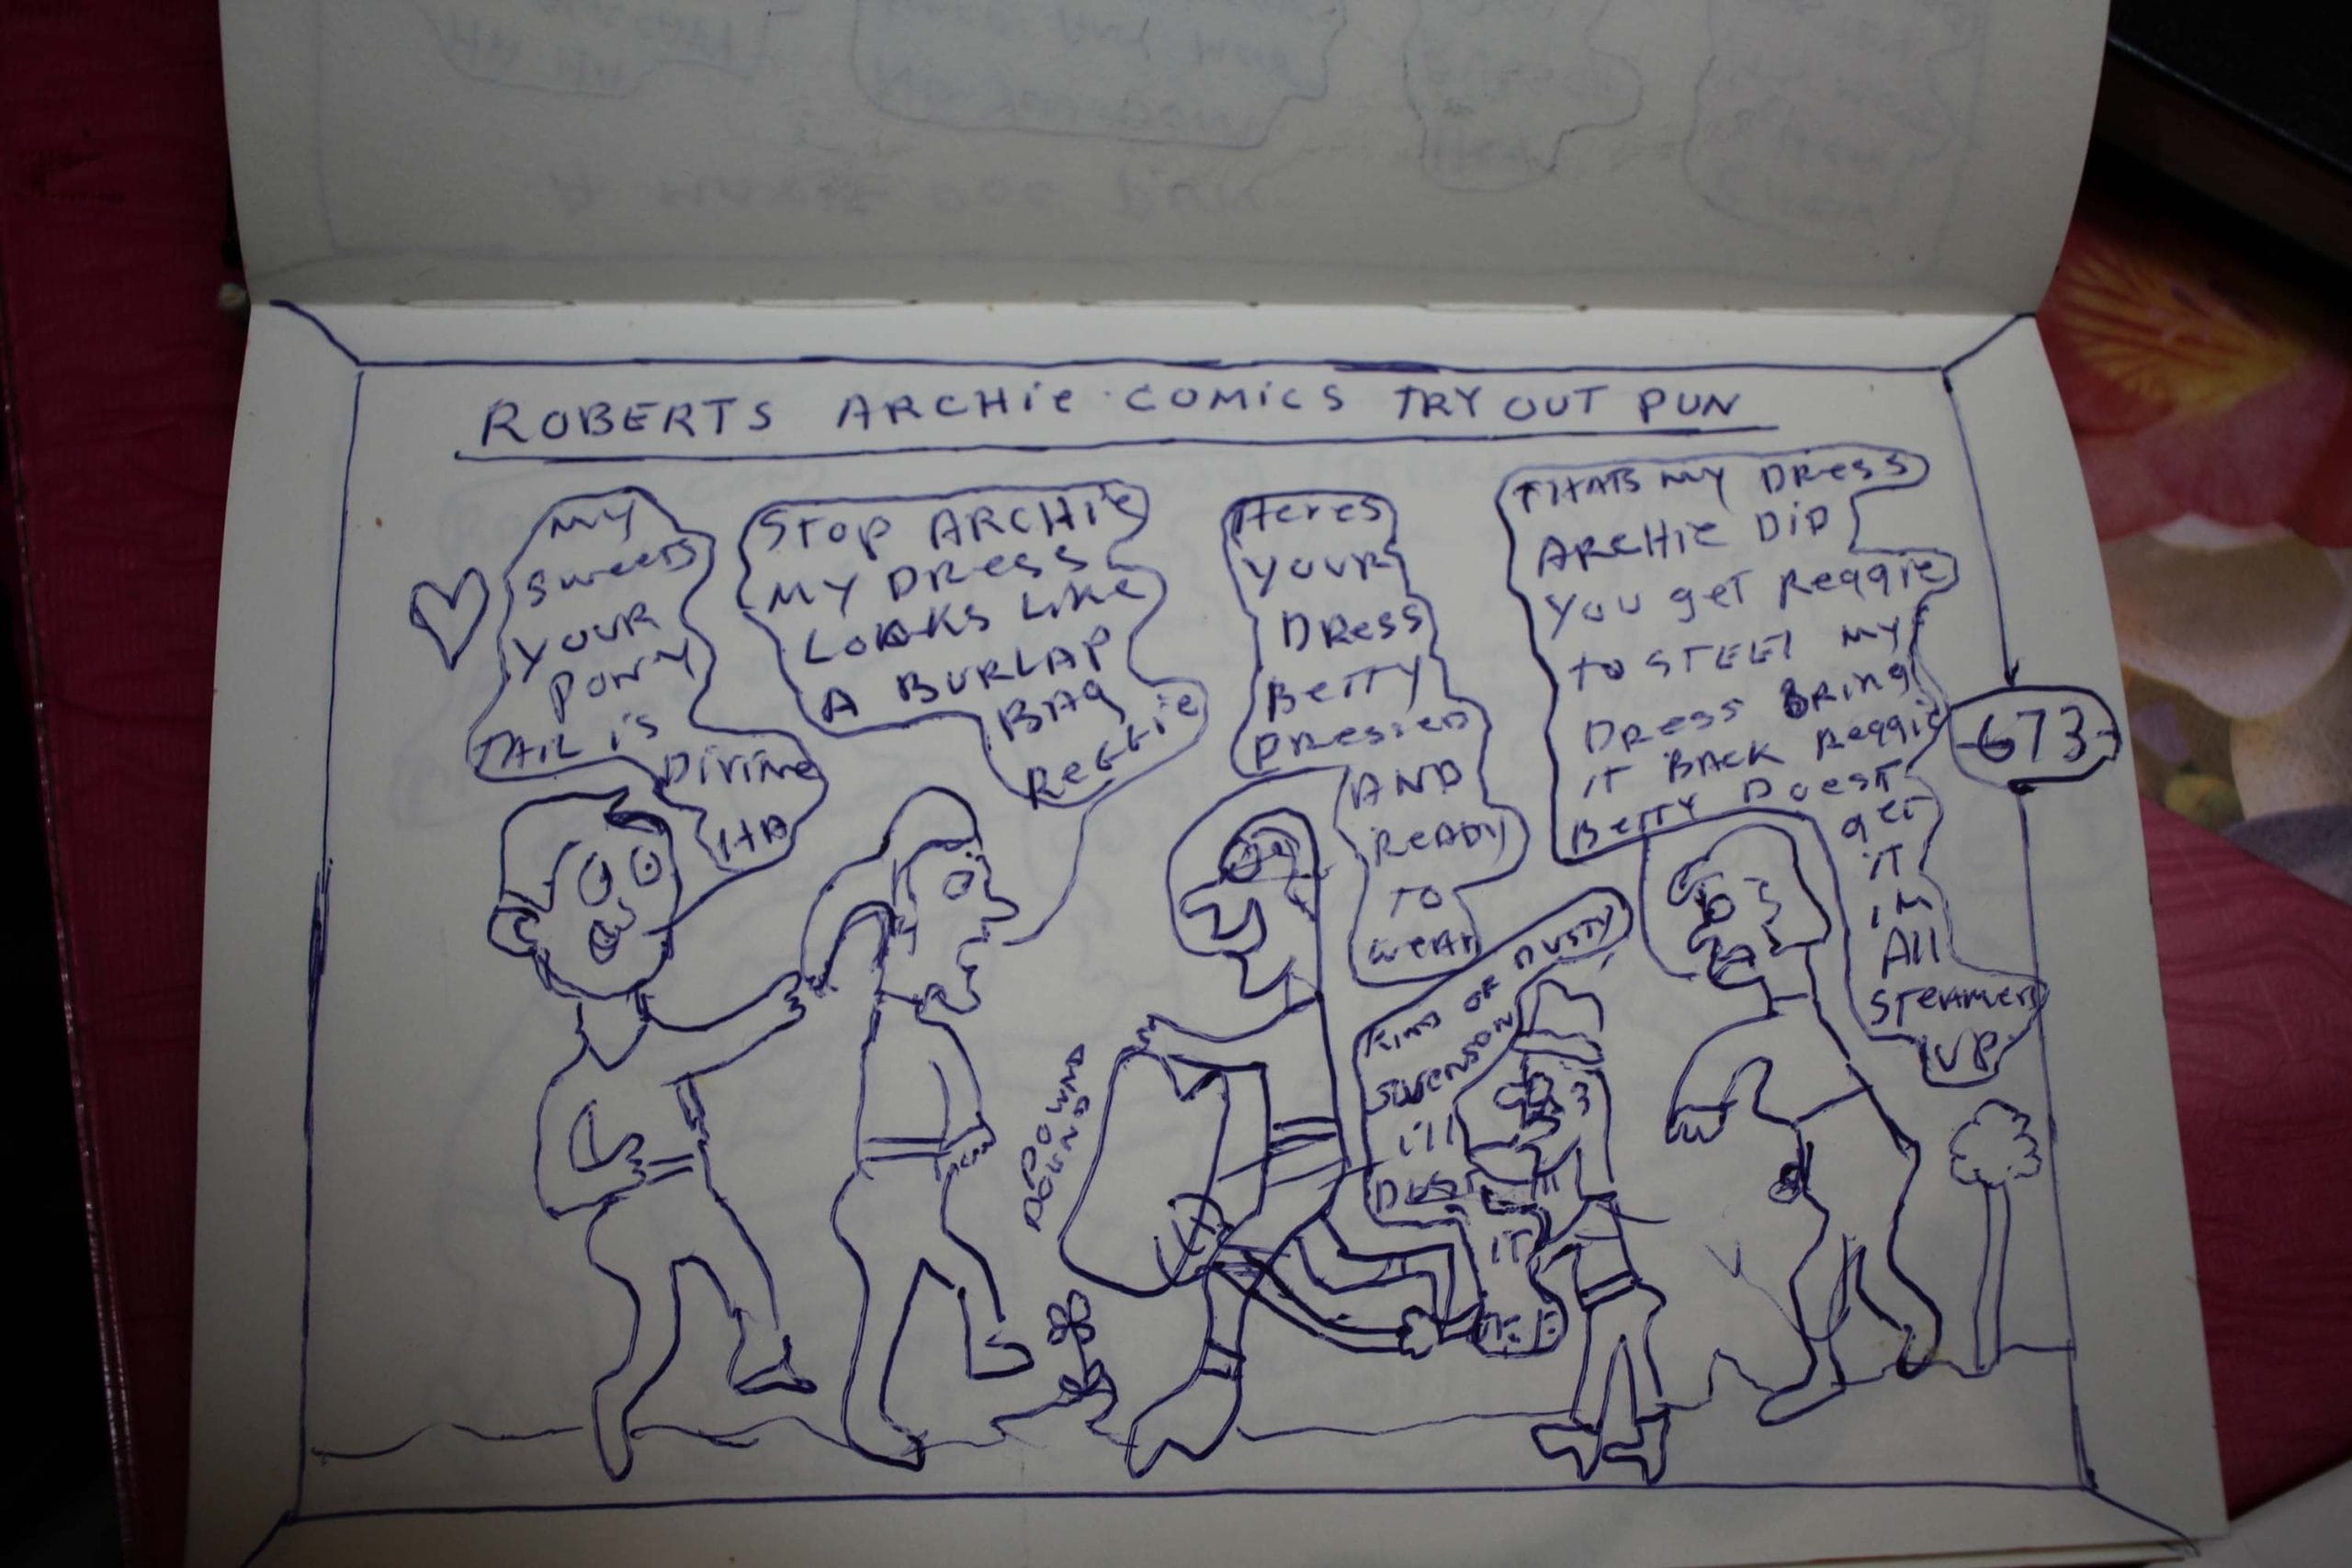 ROBERTS ARCHie COMiCS TRY OUT PUN
MY
Sweets
YOUR
PONY
TAiL is
Divine
HA
STOP ARCHie
MY DRess
LOOKS Like
A BURLAP
BAg
Reggie
Heres
YOUR
DRess
BeTTY
PResseD
AND
ReADY
TO
weAR
THATS MY DRess
ARCHie DiD
YOU geT Reggie
to STEEl MY
DRess BRing
iT BACK Reggie
BeTTY DoesT
geT
iT
iM
All
STeAMeD
UP
673
KinD OF DUSTY
SVENSON
i'll
DUST
iT
POW